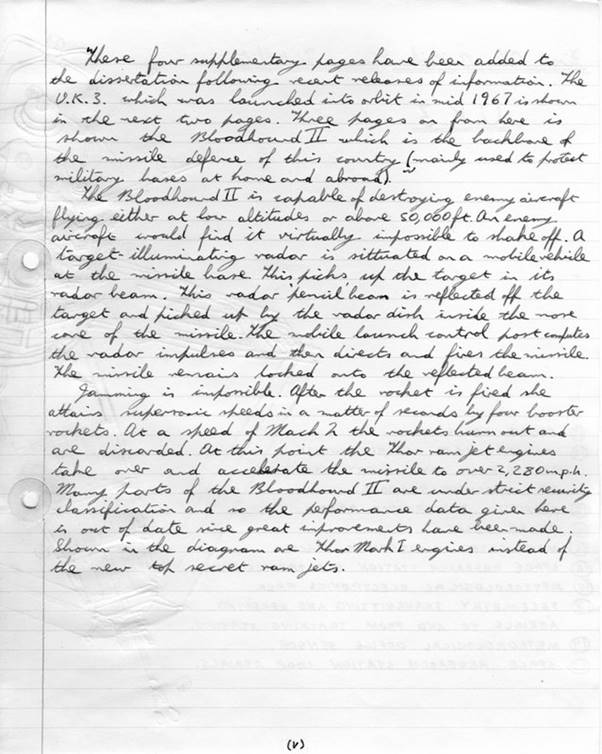 These four supplementary pages have been added to
the dissertation following recent releases of information. The
U.K.3. which was launched into orbit in mid 1967 is shown
in the next two pages. Three pages on from here is
shown the Bloodhound II which is the backbone of
the missile defence of this country (mainly used to protect
military bases at home and abroad).
The Bloodhound II is capable of destroying enemy aircraft
flying either at low altitudes or above 50,000ft. An enemy
aircraft would find it virtually impossible to shake off. A
target-illuminating radar is sittuated on a mobile vehicle
at the missile base. This picks up the target in its
radar beam. This radar 'pencil' beam is reflected off the
target and picked up by the radar dish inside the nose
cone of the missile. The mobile launch control post computes
the radar impulses and then directs and fires the missile.
The missile remains locked onto the reflected beam.
Jamming is impossible. After the rocket is fired she
attains supersonic speeds in a matter of seconds by four booster
rockets. At a speed of Mach 2 the rockets burn out and
are discarded. At this point the Thor ram jet engines
take over and accelerate the missile to over 2,280 m.p.h.
Many parts of the Bloodhound II are under strict security
classification and so the performance data given here
is out of date since great improvements have been made.
Shown in the diagram are Thor Mark I engines instead of
the new top secret ram jets.
(V)